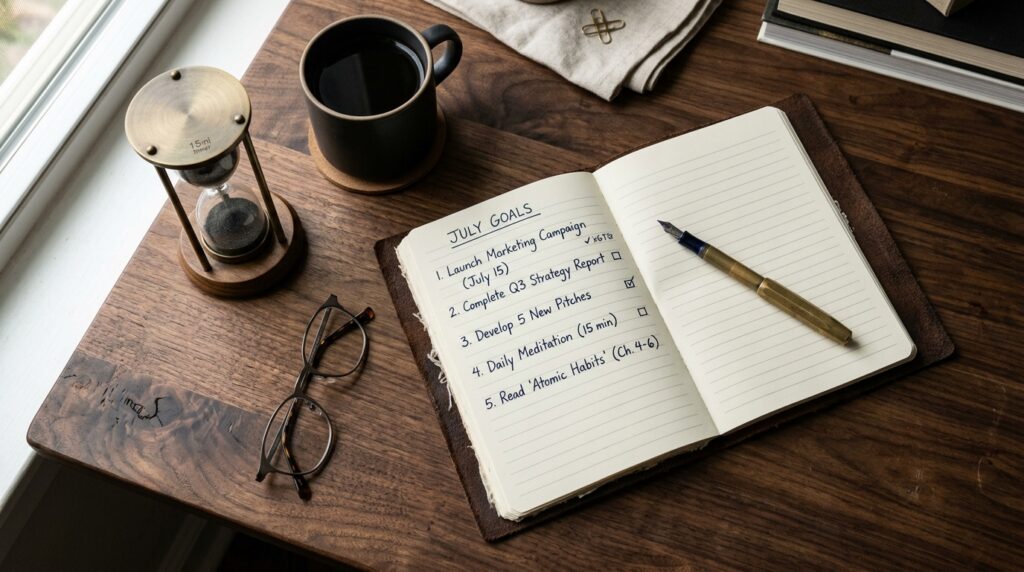 15ml
JULY GOALS
1. Launch Marketing Campaign
(July 15) ✓
2. Complete Q3 Strategy Report ☐
3. Develop 5 New Pitches ☑
4. Daily Meditation (15 min) ☐
5. Read 'Atomic Habits' (Ch. 4-6)